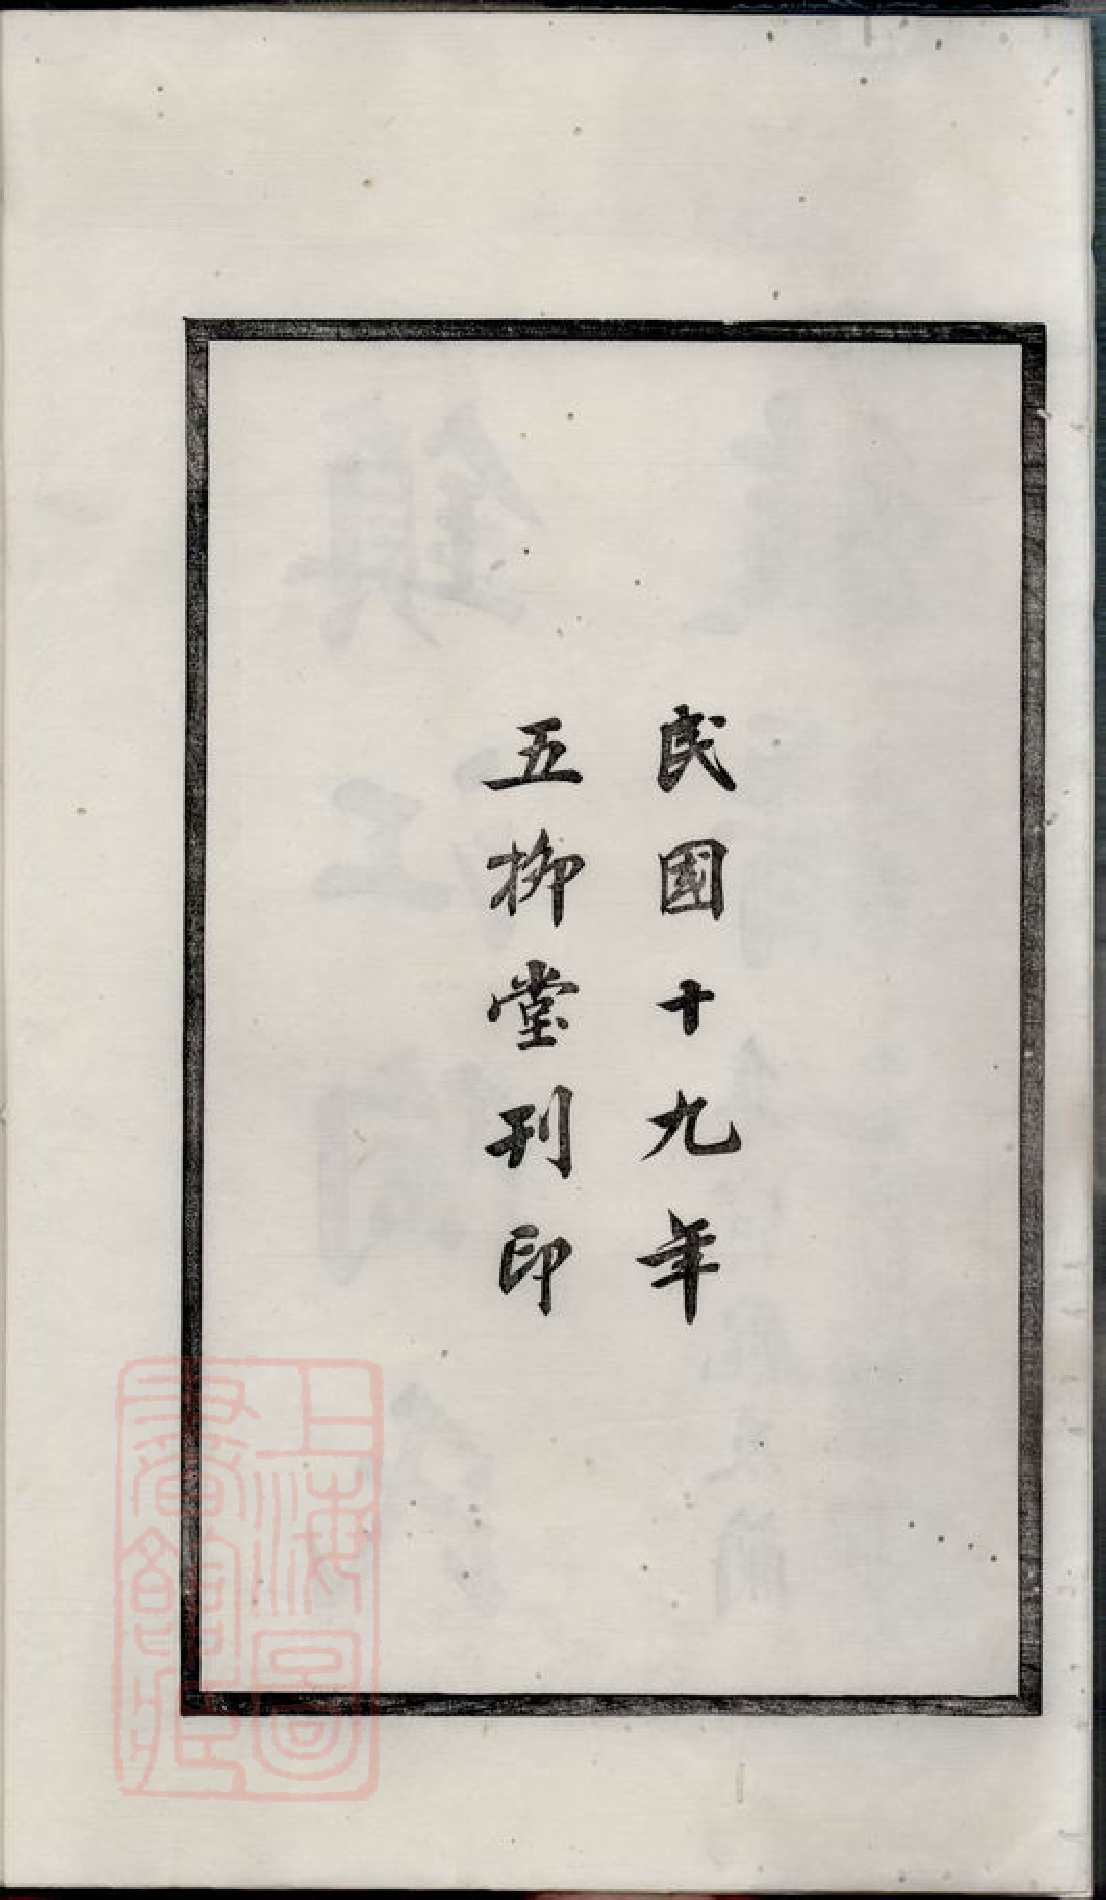 民國十九年
五柳堂刊印
上海圖
書館藏